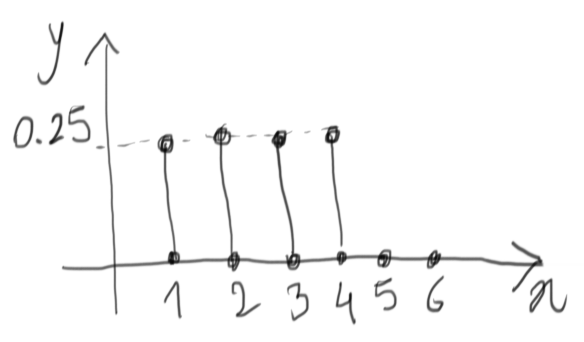 y
0.25
1 2 3 4 5 6
x